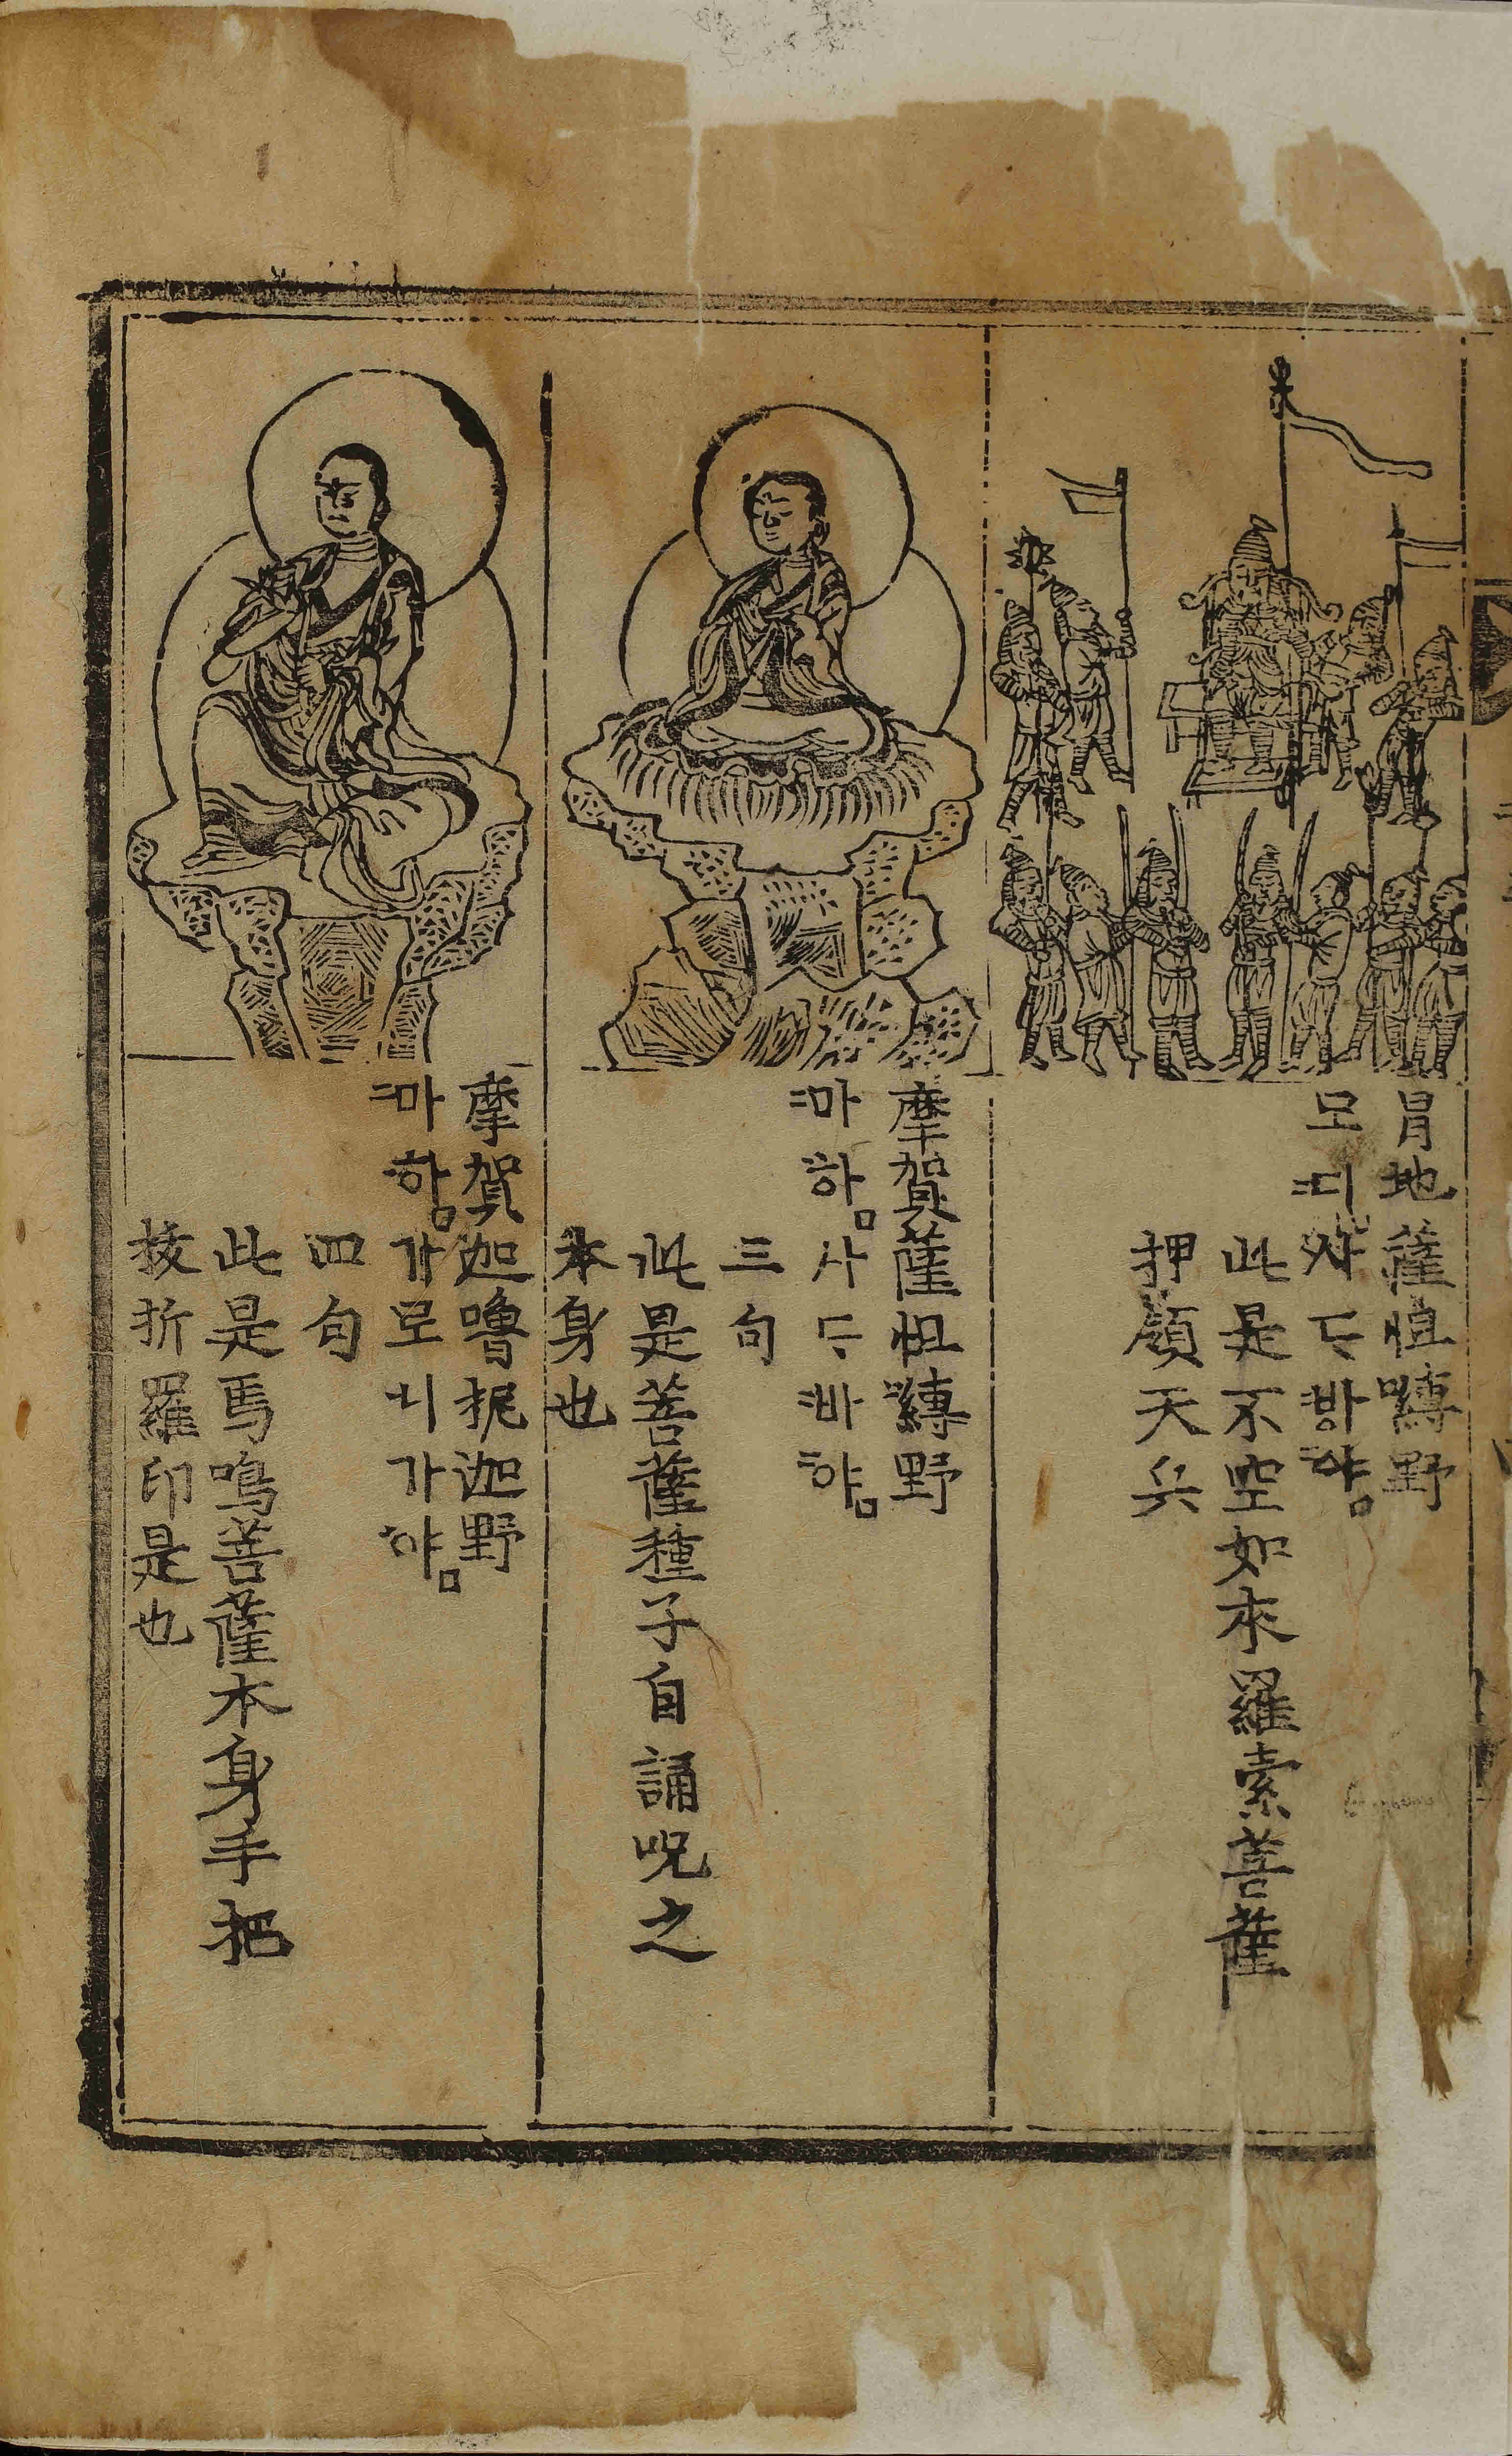 冐地薩怛嚩野
모〮디〯사〮ᄃᆞ바〯ᇰ야〯ᇰ
此是不空如來羅索菩薩
押領天兵
摩賀薩怛縛野
마〯하〯ᇰ사ᄃᆞ바〯야〯ᇰ
三句
此是菩薩種子自誦呪之
本身也
摩賀迦嚕抳迦野
마〯하〯ᇰ가〮로니가야〯ᇰ
四句
此是馬鳴菩薩本身手把
折羅印是也